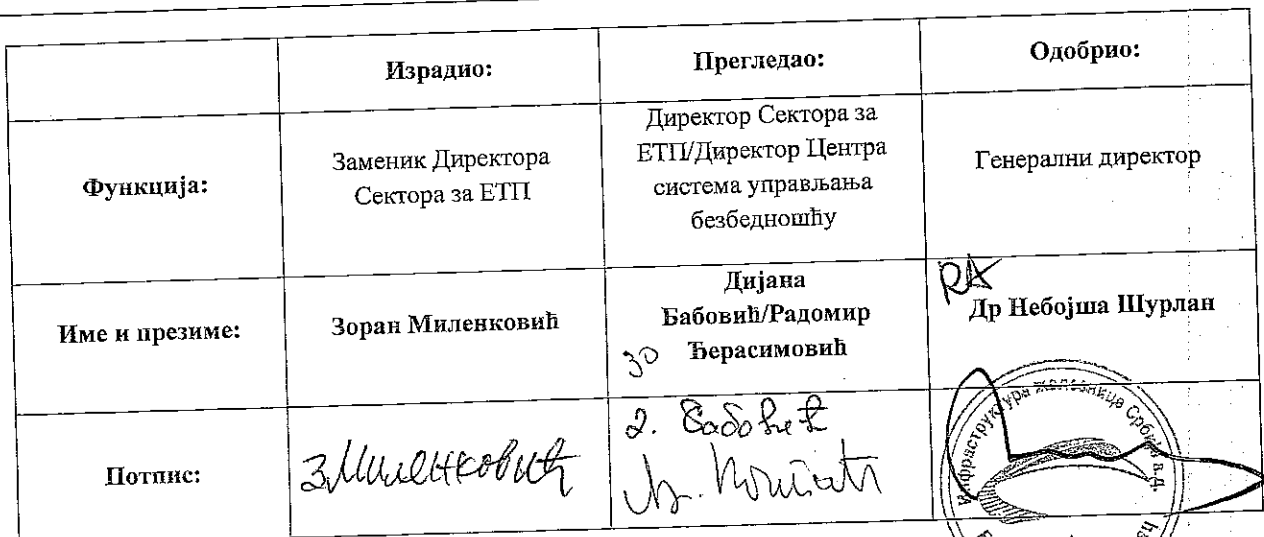 Израдио: Прегледао: Одобрио:
Функција:
Заменик Директора
Сектора за ЕТП
Директор Сектора за
ЕТП/Директор Центра
система управљања
безбедношћу
Генерални директор
Име и презиме:
Зоран Миленковић
Дијана
Бабовић/Радомир
Ђерасимовић
Др Небојша Шурлан
Потпис:
З Миленковић
Д. Бабовић
Инфраструктура железнице Србије а.д.